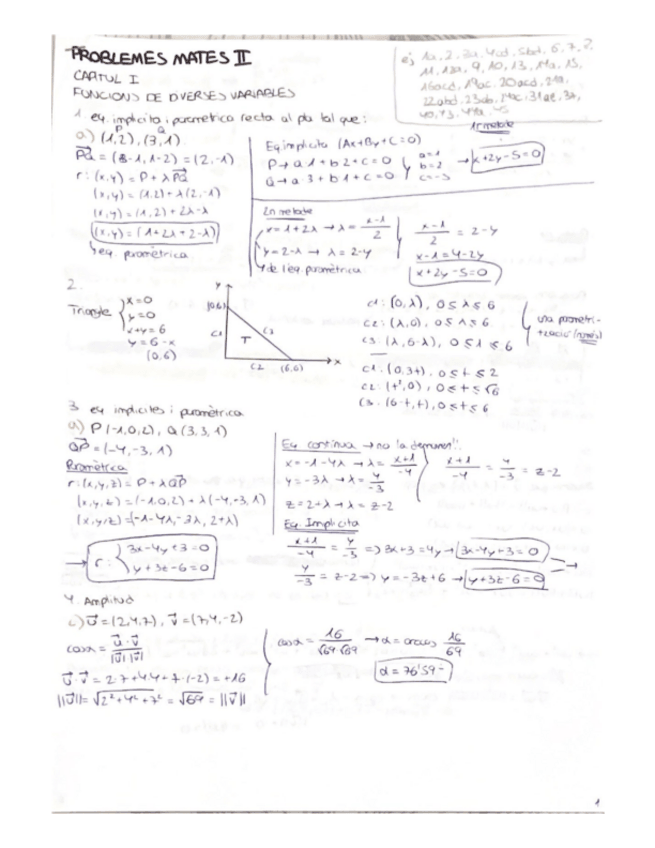 PROBLEMES MATES II
CAPÍTUL I
FUNCIONS DE DIVERSES VARIABLES
ej 1a, 2, 3a, 4cd, 5bd, 6, 7, 
11, 12a, 9, 10, 13, 14a, 15,
16acd, 19ac, 20acd, 
22abd, 23ab, 31ae, 
1. eq. implícita i paramètrica recta al pla tal que:
a) P(1,2), Q(3,1)
PQ = (3-1, 1-2) = (2,-1)
r: (x,y) = P + λPQ
(x,y) = (1,2) + λ(2,-1)
(x,y) = (1,2) + 2λ-λ
(x,y) = (1+2λ+2-λ)
↳ eq. paramètrica
1r metode
Eq implícita (Ax+By+C=0)
P → a·1 + b·2 + c = 0
Q → a·3 + b·1 + c = 0
a=1
b=2
c=-5
→ x+2y-5=0
2n metode
x=1+2λ → λ = x-1/2
y=2-λ → λ = 2-y
↳ de l'eq. paramètrica
x-1/2 = 2-y
x-1=4-2y
x+2y-5=0
2.
Triangle
x=0
y=0
x+y=6
y=6-x
(0,6)
y
(0,6)
C1
T
C3
C2
(6,0)
x
C1: (0,λ), 0≤λ≤6
C2: (λ,0), 0≤λ≤6
C3: (λ,6-λ), 0≤λ≤6
una parametri-
tzació (només)
C1: (0,3t), 0≤t≤2
C2: (t²,0), 0≤t≤√6
C3: (6-t,t), 0≤t≤6
3. eq implícites i paramètrica
a) P(-1,0,2), Q(3,3,1)
QP = (-4,-3,1)
Paramètrica
r: (x,y,z) = P + λQP
(x,y,z) = (-1,0,2) + λ(-4,-3,1)
(x,y,z) = (-1-4λ, -3λ, 2+λ)
→ r: 3x-4y+3=0
y+3z-6=0
Eq continua → no la demanen!!
x=-1-4λ → λ = x+1/-4
y=-3λ → λ = y/-3
z=2+λ → λ = z-2
x+1/-4 = y/-3 = z-2
Eq. Implícita
x+1/-4 = y/-3 => 3x+3=4y → 3x-4y+3=0
y/-3 = z-2 → y=-3z+6 → y+3z-6=0
4. Amplitud
c) u=(2,4,7), v=(7,4,-2)
cosα = u·v/|u||v|
u·v = 2·7+4·4+7·(-2) = +16
||u|| = √2²+4²+7² = √69 = ||v||
cosα = 16/√69·√69 → α = arccos 16/69
α = 76'59º
1